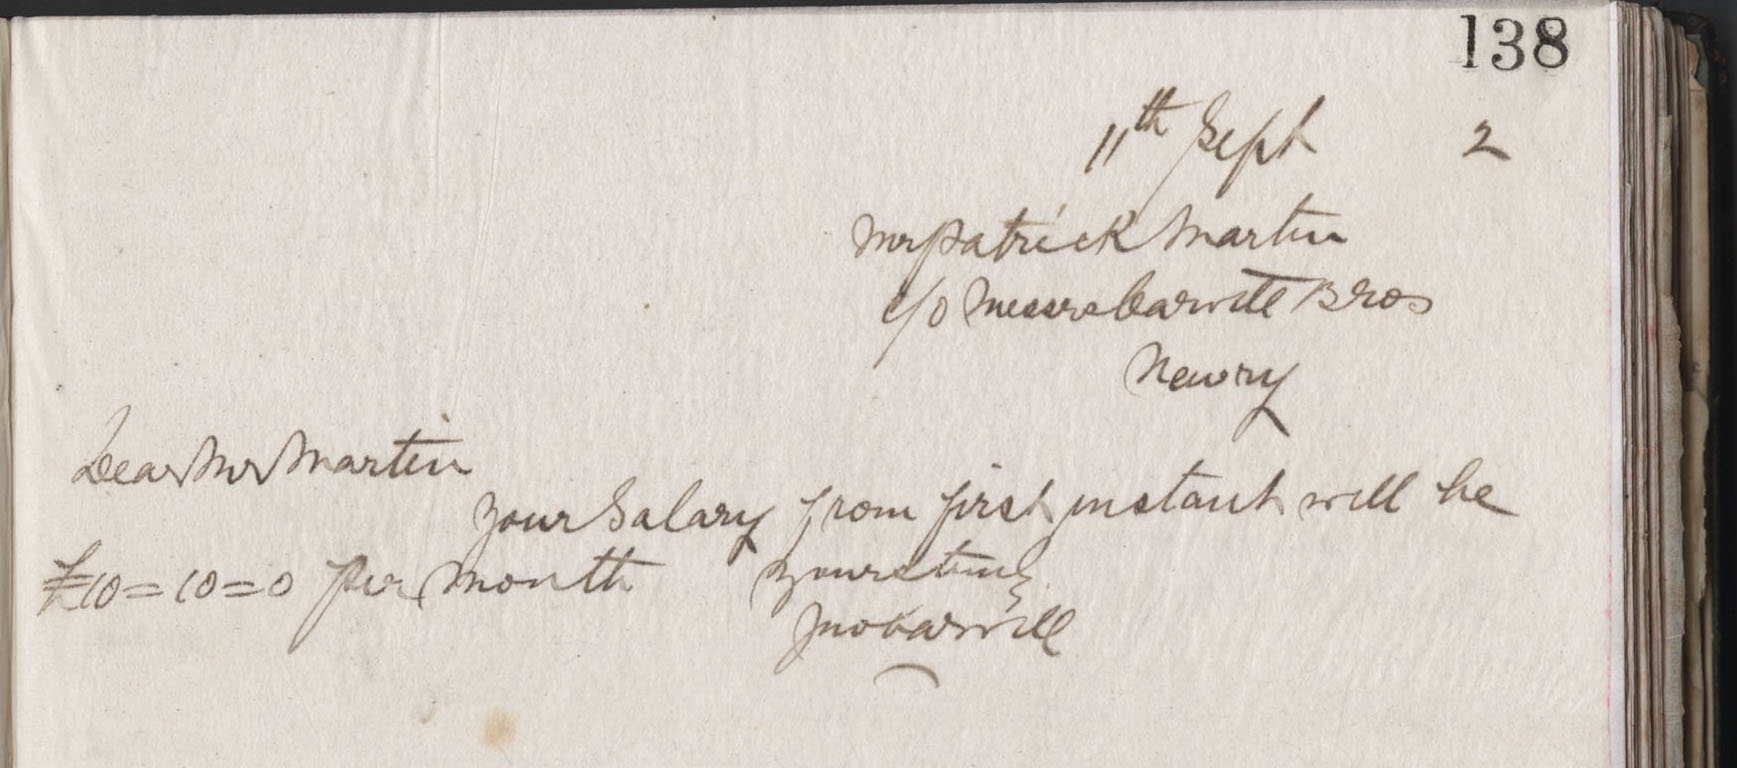 138
11th Sept 2
Mr Patrick Martin
c/o Messrs Carvill Bros
Newry
Dear Mr Martin
Your Salary from first instant will be
£10=10=0 per Month Yours truly
Jno Carvill